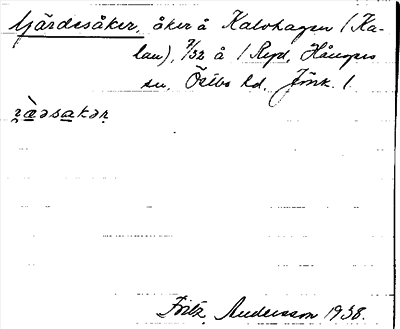 Gärdesåker, åker å Kalvhagen (Ka-
lau), 7/32 å 1 Ryd, Hångers
sn, Östbo hd, Jönk. l.
Fritz Andersson 1938.